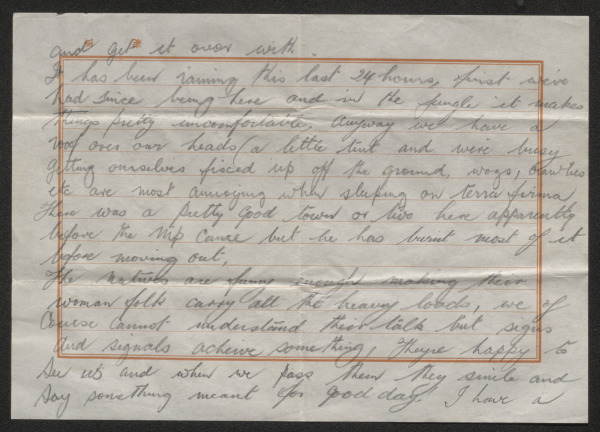 and get it over with.
It has been raining this last 24 hours, first we've
had since being here and in the jungle it makes
things pretty uncomfortable, anyway we have a
roof over our heads (a little tent and were busy
getting ourselves fixed up off the ground, wogs, crawlies
etc are most annoying when sleeping on terra firma
There was a pretty good town or two here apparently
before the Nip cance but he has burnt most of it
before moving out,
The natives are funny enough making their
woman folk carry all the heavy loads, we of
course cannot understand their talk but signs
and signals acheive something, Theyre happy to
see us and when we pass them they smile and
say something meant for good day. I have a